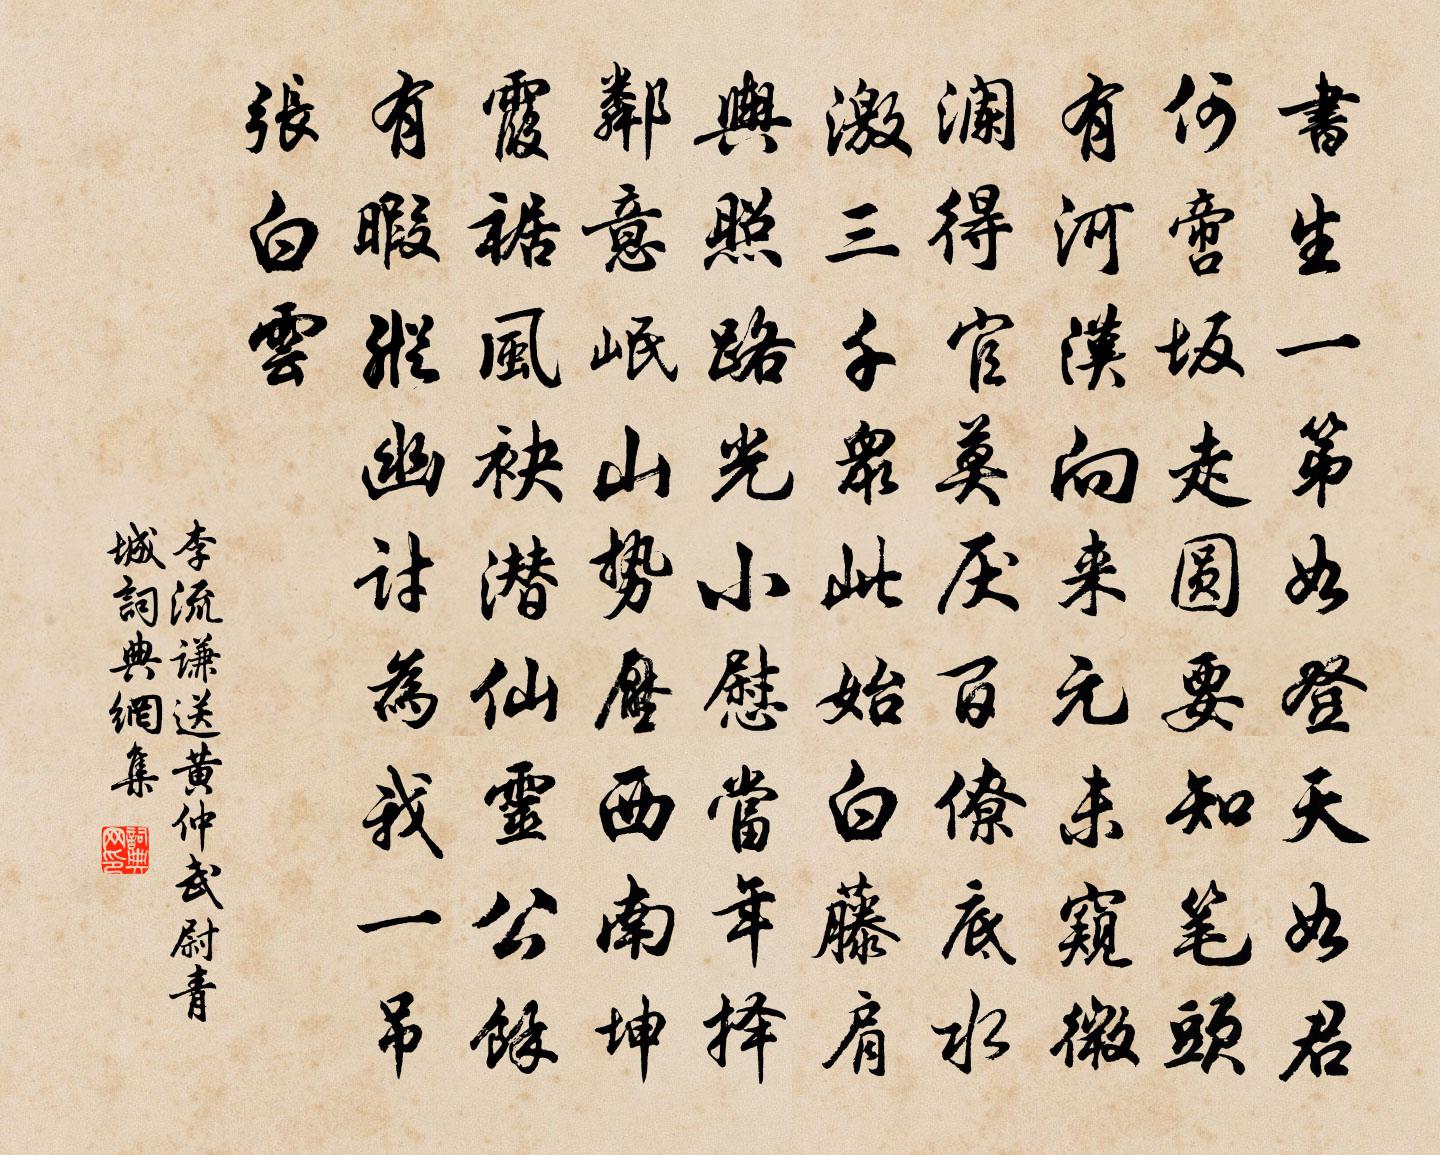 書生一第如登天如君
何啻坂走圆要知笔頭
有河漢向来元未窺微
澜得官莫厌百僚底水
激三千衆此始白藤肩
輿照路光小慰當年择
鄰意岷山勢壓西南坤
霞裾風袂潜仙靈公餘
有暇縱幽討為我一吊
張白雲
李流谦送黄仲武尉青
城詞典網集
詞典网印